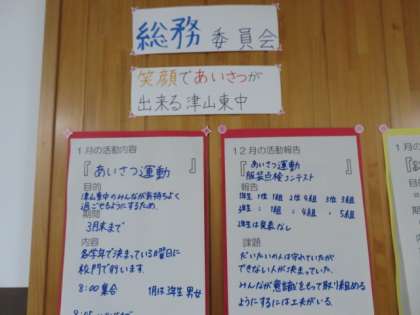 総務委員会
笑顔であいさつが
出来る津山東中
1月の活動内容
『あいさつ運動』
目的
津山東中のみんなが気持ちよく
過ごせるようにするため。
期間
3月末まで
内容
各学年で決まっている曜日に
校門で行います。
8:00 集合 1月は3年生 男女
12月の活動報告
『あいさつ運動
服装点検コンテスト』
報告
課題
だいたいの人は守れていたが
できない人が決まっていた。
みんなが意識をもって取り組める
ようにするには工夫がいる。